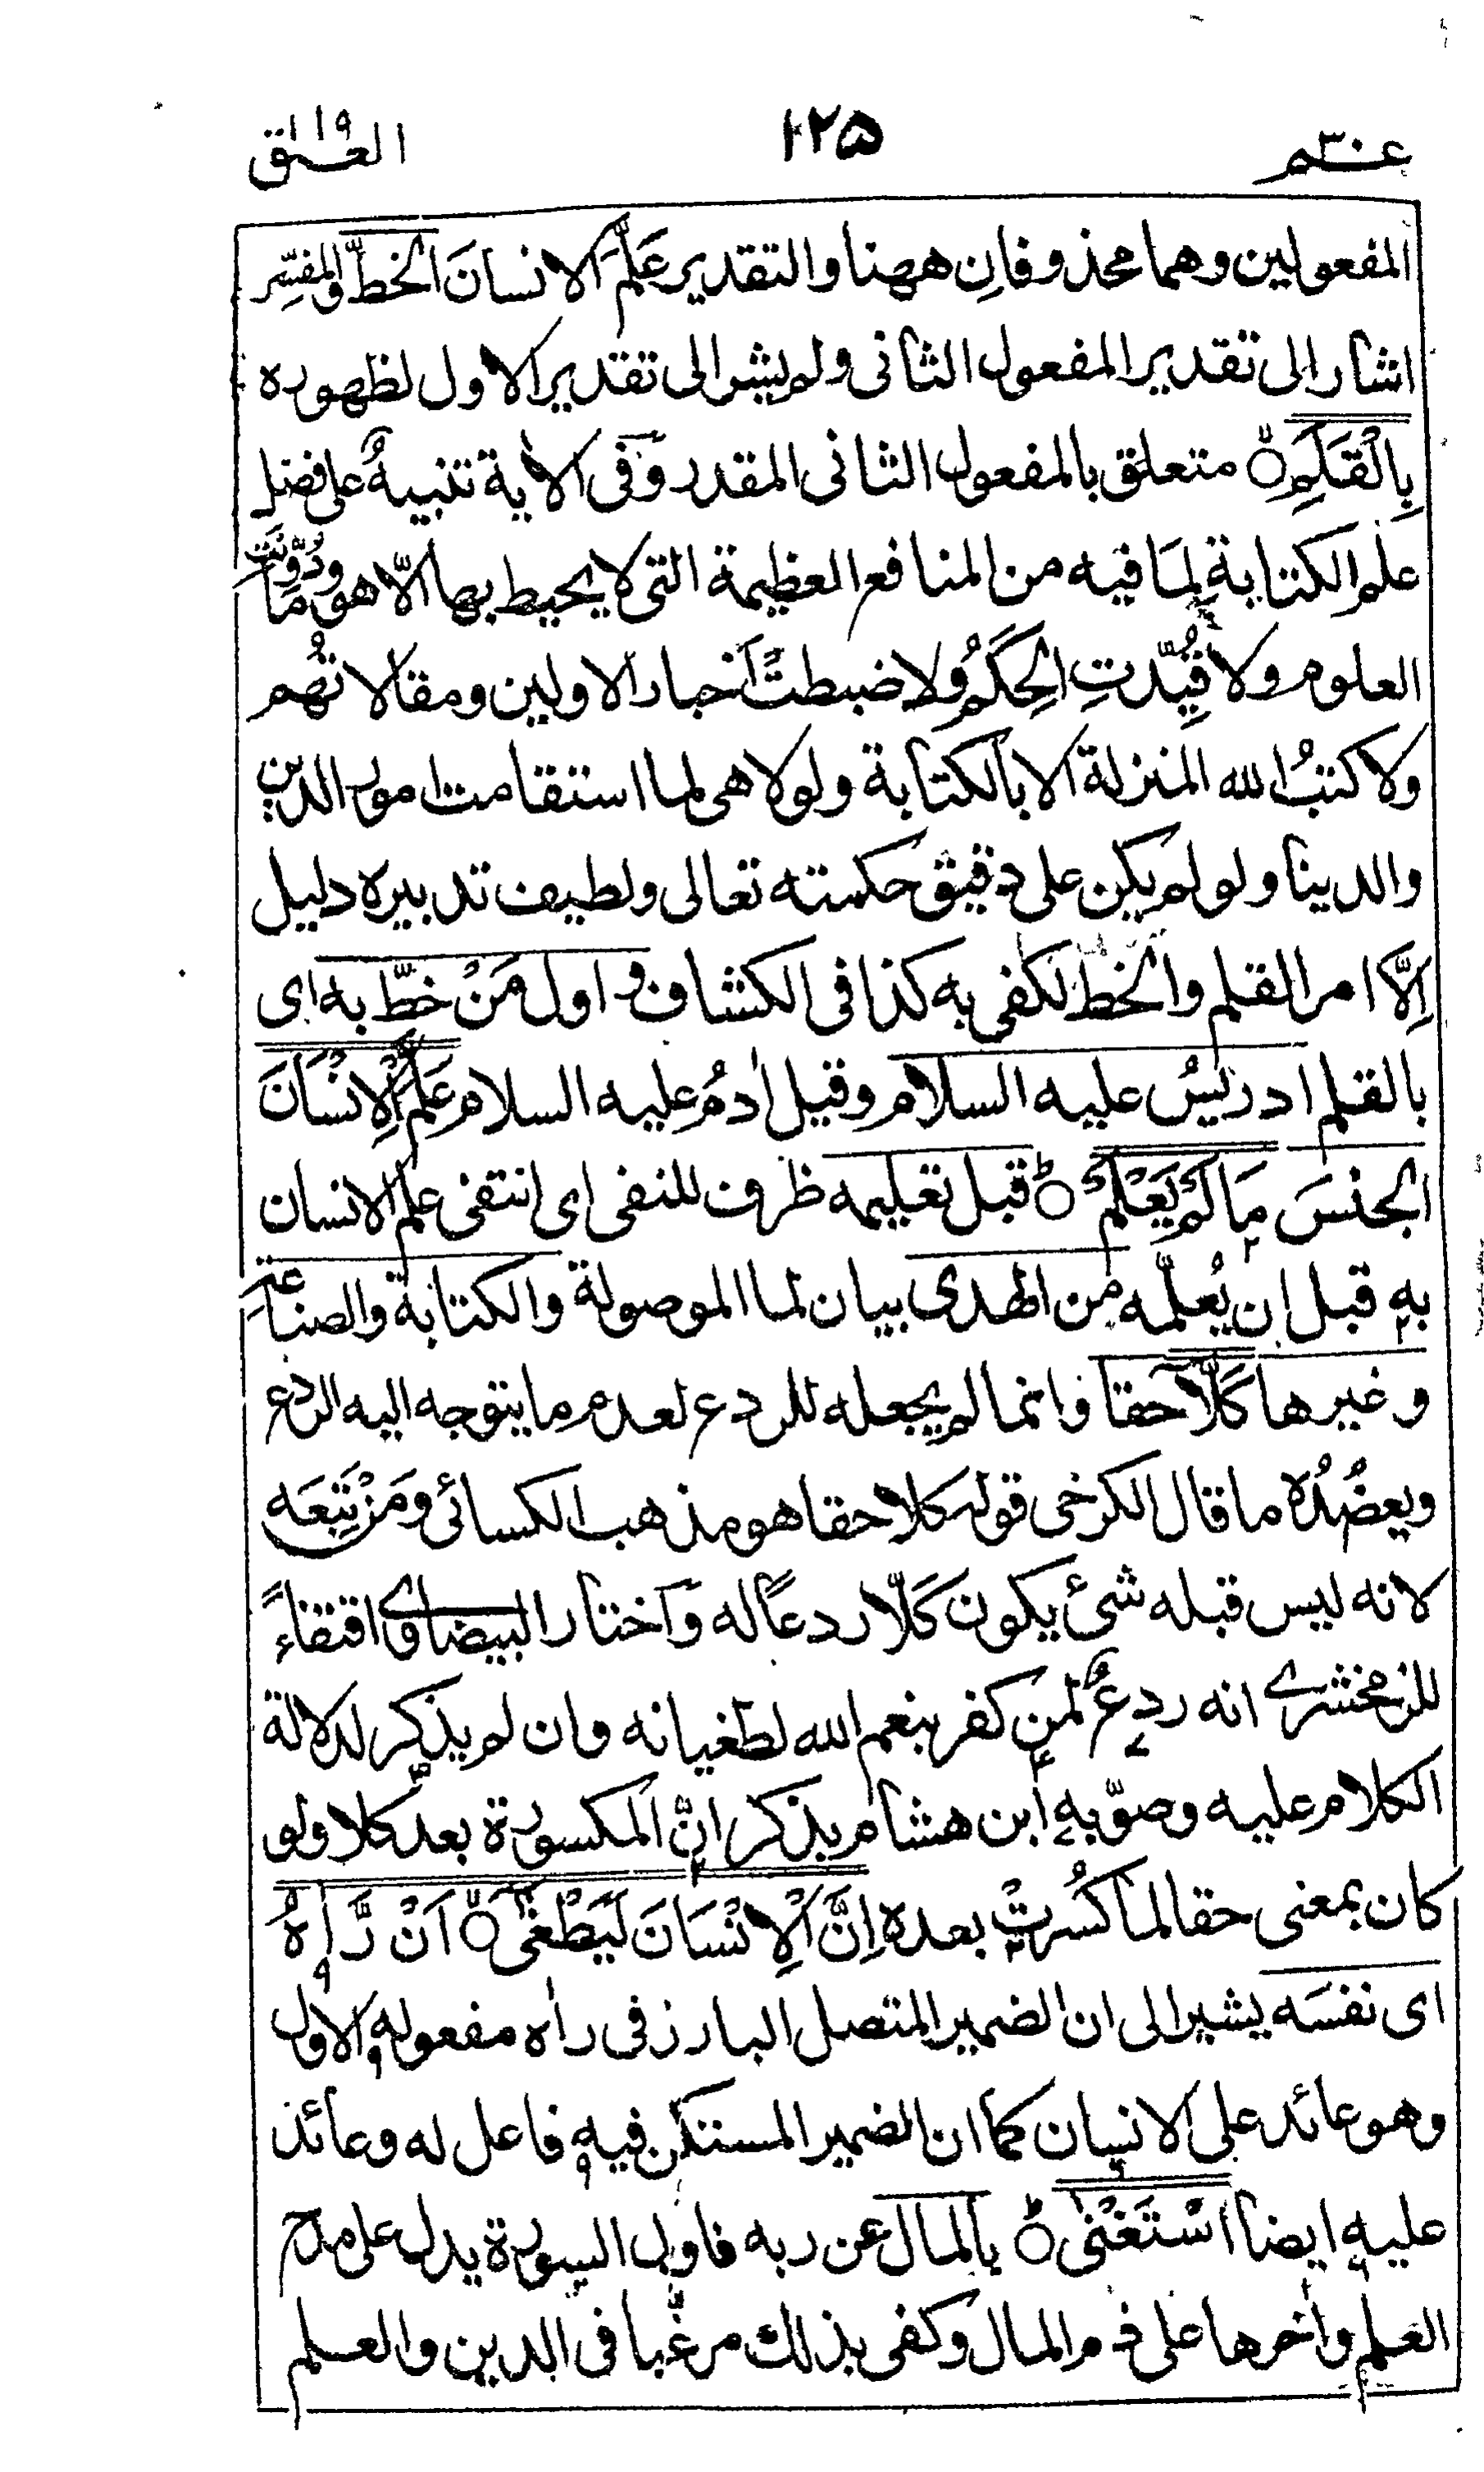 عم ٣٠
١٢٥
العلق ١٩
المفعولين وهما محذوفان ههنا والتقدير عَلَّمَ الانسانَ الخطَّ والمفسِّر
اشار الى تقدير المفعول الثانى ولم يشر الى تقدير الاول لظهوره
بِالْقَلَمِ۝ متعلق بالمفعول الثانى المقدر وفى الاٰية تنبيهٌ على فضل
علم الكتابة لِمَا فيه من المنافع العظيمة التى لا يحيط بها الّا هو وما دُوّنَت
العلوم ولا قُيِّدتِ الحِكَمُ ولا ضبطتْ اَخبار الاولين ومقالاتُهُم
ولا كتبُ الله المنزلة الا بالكتابة ولولا هى لما استقامت امور الدين
والدينا ولو لم يكن على دقيق حكمته تعالى ولطيف تدبيره دليل
اِلّا امر القلم والخط لكفى به كذا فى الكشاف واول مَنْ خطّ به اى
بالقلم ادريسُ عليه السلام وقيل اٰدمُ عليه السلام عَلَّمَ الْاِنْسَانَ
الجنسَ مَا لَمْ يَعْلَمْ۝ قبل تعليمه ظرف للنفى اى انتفى علم الانسان
به قبل ان يُعلّمه من الهدى بيان لما الموصولة والكتابة والصناعة
وغيرها كَلَّا حقا وانما لم يجعله للردع لعدم ما يتوجه اليه الردع
ويعضُدُه ما قال الكرخى قوله كلا حقا هو مذهب الكسائى ومَنْ تَبِعَه
لانه ليس قبله شئ يكون كَلّا ردعاً له وَاختار البيضاوى اقتفاءً
للزمخشرى انه ردعٌ لمن كفر بنعم الله لطغيانه وان لم يذكر لدلالة
الكلام عليه وصوّبه ابن هشام بذكر انَّ المكسورة بعد كلا ولو
كان بمعنى حقا لما كُسُرتْ بعده اِنَّ الْاِنْسَانَ لَيَطْغٰى۝ اَنْ رَّاٰهُ
اى نفسَه يشير الى ان الضمير المتصل البارز فى راٰه مفعوله الاول
وهو عائد على الانسان كما ان الضمير المستكن فيه فاعل له وعائد
عليه ايضا اسْتَغْنٰى۝ بالمال عن ربه فاول السورة يدل على مدح
العلم واٰخرها على ذم المال وكفى بذلك مرغّبا فى الدين والعلم